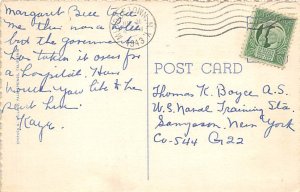 Margaret Bell told
me this was a hotel
but the government
has taken it over for
a hospital. How
would you like to be
sent here.
Kaye.
1943
POST CARD
Thomas K. Boyce A.S.
U.S. Naval Training Sta.
Sampson, New York
Co-544 G-22